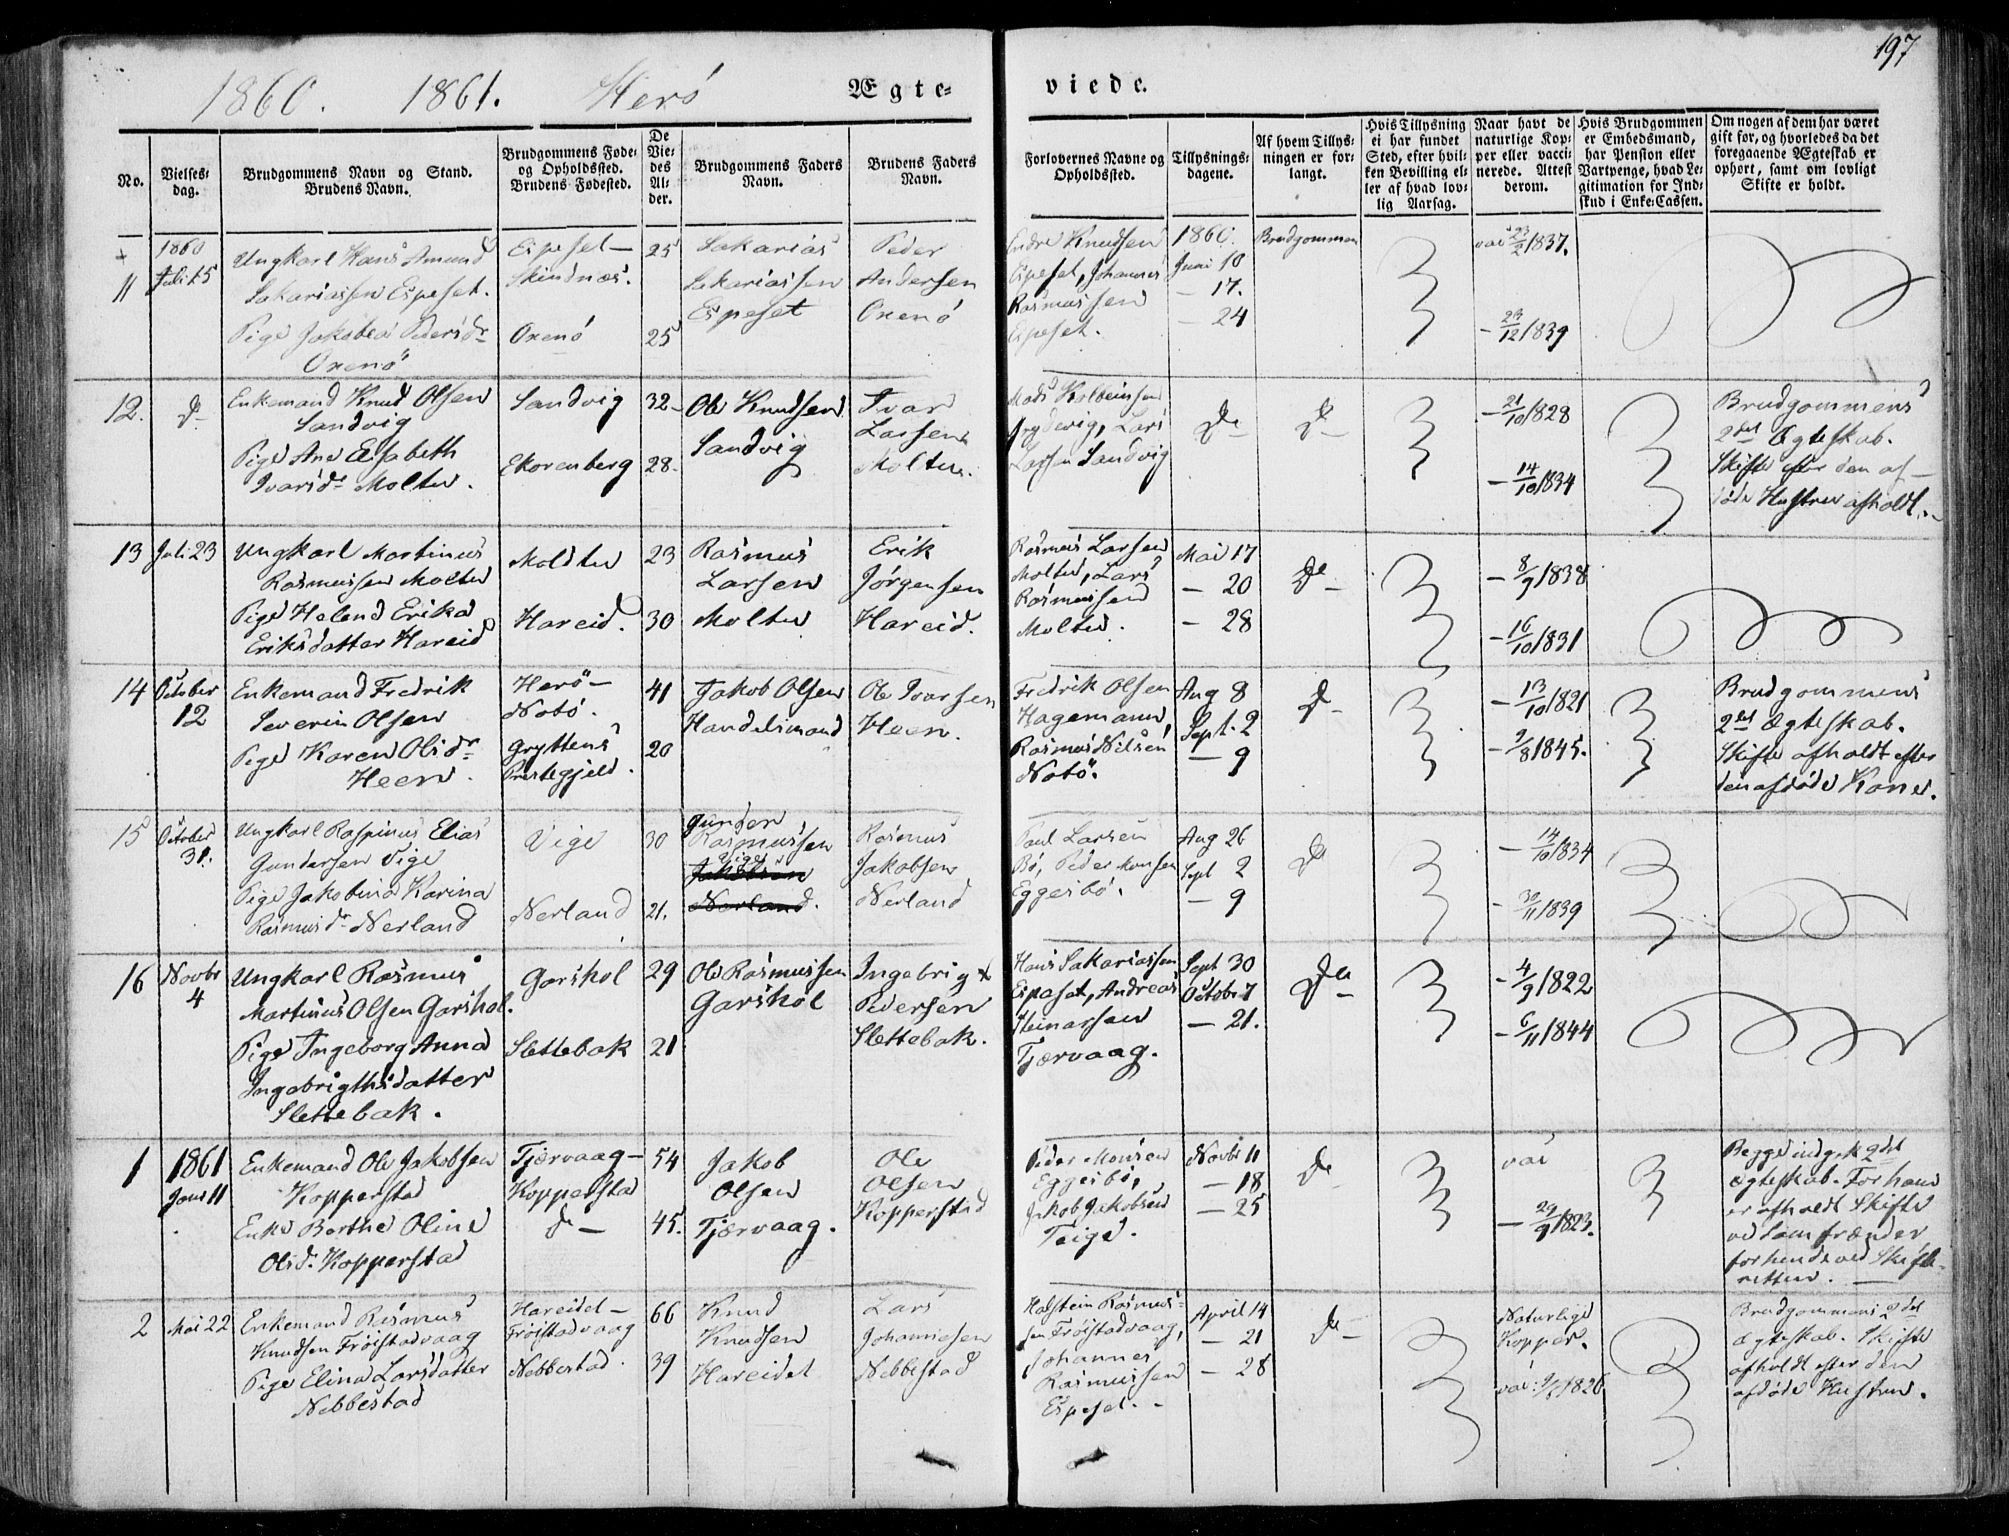 197
1860. 1861. Herö Ægte- viede.
No.
Vielses-
dag.
Brudgommens Navn og Stand.
Brudens Navn.
Brudgommens Føde-
og Opholdssted.
Brudens Fødested.
De
Vie-
des
Al-
der.
Brudgommens Faders
Navn.
Brudens Faders
Navn.
Forlovernes Navne og
Opholdssted.
Tillysnings-
dagene.
Af hvem Tillys-
ningen er for-
langt.
Hvis Tillysning
ei har fundet
Sted, efter hvil-
ken Bevilling el-
ler af hvad lov-
lig Aarsag.
Naar havt de
naturlige Kop-
per eller vacci-
nerede. Attest
derom.
Hvis Brudgommen
er Embedsmand,
har Pension eller
Vartpenge, hvad Le-
gitimation for Ind-
skud i Enke-Cassen.
Om nogen af dem har været
gift før, og hvorledes da det
foregaaende Ægteskab er
ophørt, samt om lovligt
Skifte er holdt.
11
1860
Juli 15
Ungkarl Hans Amund
Sakariassen Espeset.
Pige Jakobea Pedersdr
Oxenö
Espeset -
Skindnæs.
Oxenö
25
25
Sakarias
Sakariassen
Espeset
Peder
Andersen
Oxenö
Endre Knudsen
Espeset, Johannes
Rasmussen
Espeset.
1860.
Juni 10
- 17.
- 24
Brudgommen
vac 23/2 1837.
- 23/12 1839
12.
do
Enkemand Knud Olsen
Sandvig
Pige Ane Elisabeth
Ivarsdr Moltu.
Sandvig
Ekorenberg
32
28
Ole Knudsen
Sandvig
Ivar
Larsen
Moltu.
Mads Kolbeinsen
Lars
Larsen Sandvig
do
do
- 21/10 1828
- 14/10 1834
Brudgommens
2det Ægteskab.
Skifte efter den af-
døde Hustrue afholdt.
13
Juli 23
Ungkarl Martinus
Rasmussen Moltu
Pige Helene Erika
Eriksdatter Hareid
Moldtu
Hareid.
23
30
Rasmus
Larsen
Moltu
Erik
Jörgensen
Hareid.
Rasmus Larsen
Moltu, Lars
Rasmussen
Moltu.
Mai 17
- 20
- 28
do
- 8/9 1838
- 16/10 1831
14
October
12
Enkemand Fredrik
Severin Olsen
Pige Karen Olsdr
Heen.
Herö -
Notö.
Gryttens
Prestegjeld.
41
20
Jakob Olsen
Handelsmand
Ole Ivarsen
Heen.
Fredrik Olsen
Hagemann,
Rasmus Nilsen
Notö.
Aug 8
Sept. 2
- 9
do
- 13/10 1821
- 9/8 1845.
Brudgommens
2det Ægteskab.
Skifte afholdt efter
den afdøde Kone.
15
October
31.
Ungkarl Raspinus Elias
Gundersen Vige
Pige Jakobine Karina
Rasmusdr Nerland
Vige
Nerland
30
21.
Gunder
Rasmussen
Vige
Jakobsen
Nerland.
Rasmus
Jakobsen
Nerland
Paul Larsen
Bö, Peder Monsen
Eggesbö.
Aug 26
Sept 2
- 9
do
- 14/10 1834
- 30/11 1839
16
Novbr
4
Ungkarl Rasmus
Martinus Olsen Garshol.
Pige Ingeborg Anna
Ingebrigthsdatter
Slettebak.
Garshol
Slettebak
29
21
Ole Rasmussen
Garshol
Ingebrigt
Pedersen
Slettebak.
Hans Sakariassen
Espeset, Andreas
Steinarssen
Tjærvaag.
Sept 30
Octobr 7
- 21.
do
- 4/9 1822
- 6/11 1844
1
1861
Janr 11
Enkemand Ole Jakobsen
Kopperstad
Enke Berthe Oline
Olsdr Kopperstad
Tjærvaag -
Kopperstad
do -
54
45.
Jakob
Olsen
Tjærvaag.
Ole
Olsen
Kopperstad
Peder Monsen
Eggesbö,
Jakob Jakobsen
Teige.
Novbr 11
- 18
- 25
do
vac
- 29/9 1823.
Begge indg. K 2det
Ægteskab. For ham
er afholdt Skifte
ved Samfrænder
for hende ved Skifte-
retten.
2
Mai 22
Enkemand Rasmus
Knudsen Fröistadvaag
Pige Elina Larsdatter
Nebbestad
Hareidet -
Fröistadvaag
Nebbestad.
66
39
Knud
Knudsen
Hareidet
Lars
Johannesen
Nebbestad
Holstein Rasmus-
sen Fröistadvaag,
Johannes
Rasmussen
Espeset.
April 14
- 21
- 28
do
Naturlige
Kopper.
vac: 9/8 1826
Brudgommens 2det
Ægteskab. Skifte
afholdt efter den
afdøde Hustrue.